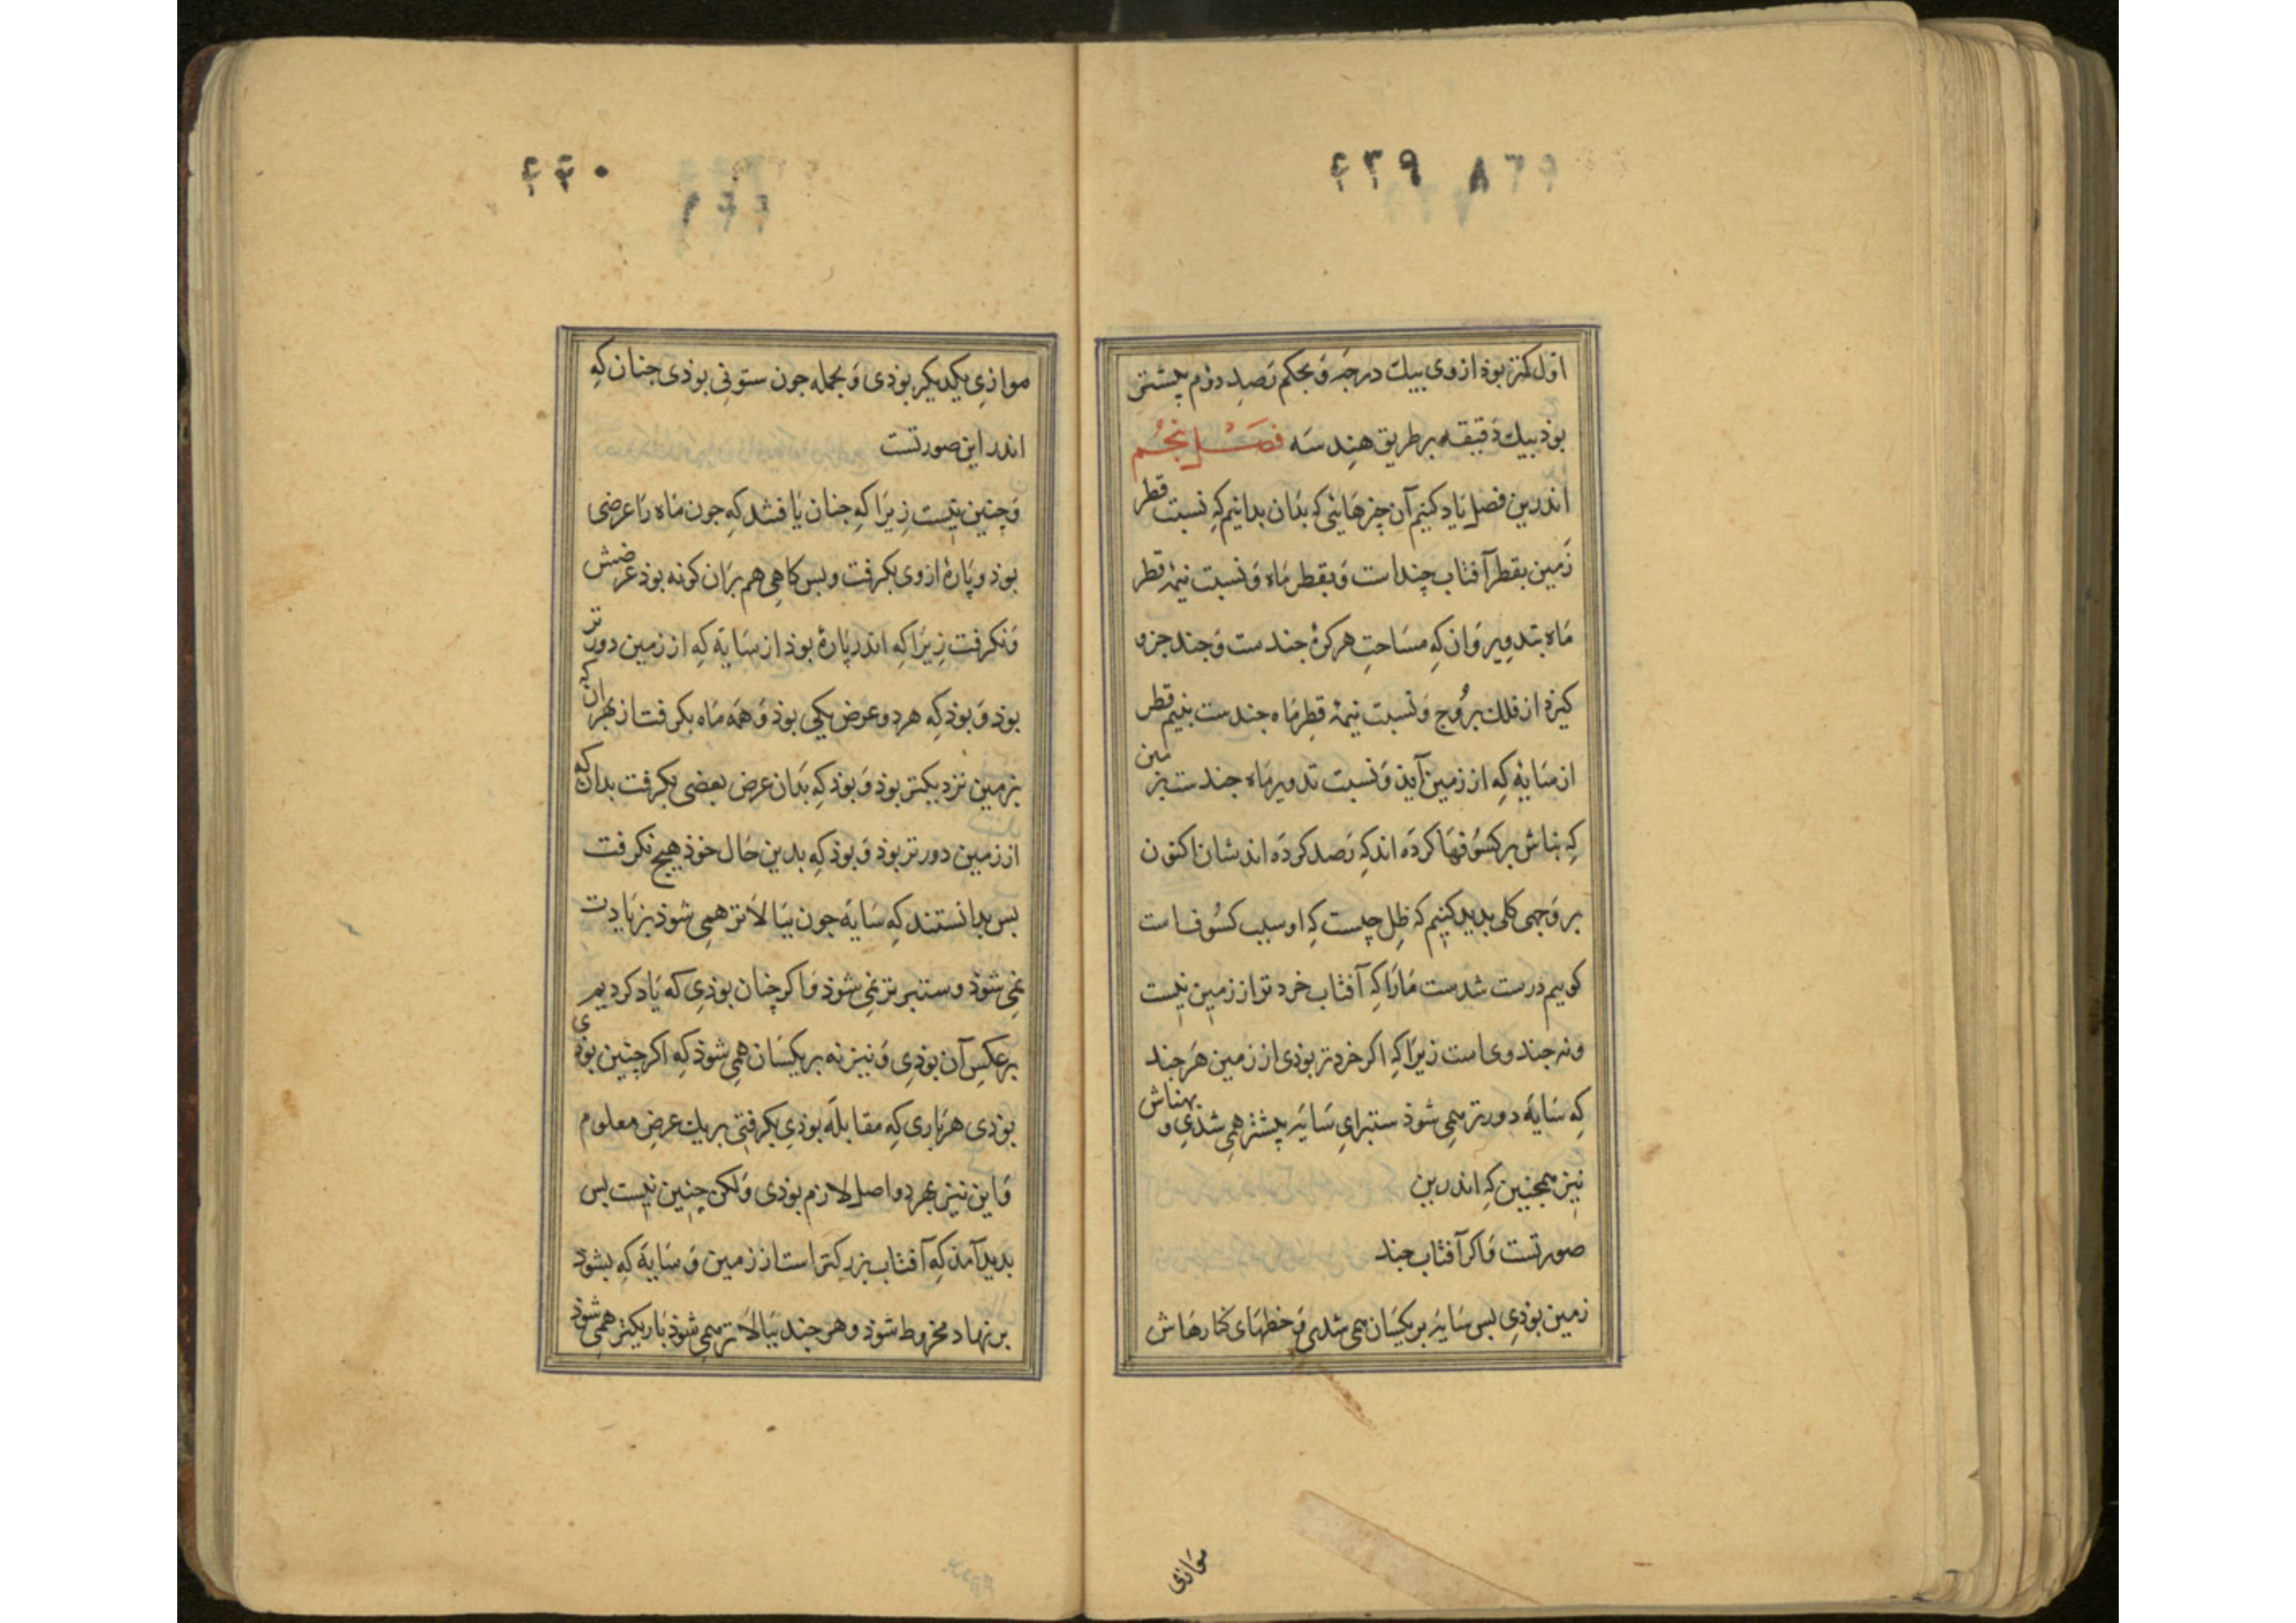 ۴۳۹ ۸۳۹
اول کمتر بوذ از وی بیك درجَه وَ بحکم رَصدِ دوُم بیشتر
بوذ بیك دَقیقه بر طریق هِندسَه فصَــل پنجُــم
اندرین فصل یَاد کنیم آن چیزهَائی کِه بدَان بدانیم کِه نسبت قطر
زَمین بقطر آفتاب چنداست وَ بقطر مَاه وَ نسبت نیمهٔ قطر
مَاه بتدویر وَان کِه مسَاحتِ هر کرهٔ جندست وَ جند جزو
کیرذ از فلك برُوج وَ نسبت نیمهٔ قطِر مَاه جندست بنیم قطر
از سَایهٔ کِه از زمین آیذ وَ نسبت تدویر مَاه جندست بزمین
کِه بناش بر کسُوفهَا کردَه اند کِه رَصد کردَه اندشان اکنون
بر وَجهی کلی بدید کنیم که ظِل چیست کِه او سبب کسُوفست
کوییم درست شدست مَارَا کِه آفتاب خردتر از زمین نیست
ونه جند وی است زیرَا کِه اکر خردتر بوذی از زمین هَر جند
کِه سَایَه دورتر همِی شوذ ستبرایِ سَایَه بیشتر همِی شذیِ و بهناش
نیز همجنین کِه اندرین
صورتست وَاکر آفتاب جند
زمین بوذیِ بس سَایَه بر یکسَان همی شدی وَ خطهَای کنارهَاش
موَازی
۴۴۰
موازیِ یکدیکر بوذی وَ بجمله جون ستونیِ بوذی جنان کِه
اندر این صورتست
وَ چنین نیست زیرَا کِه جنان یَافتند کِه جون مَاه رَا عرضی
بوذ و پَارهٔ از وی بکرفت و بس کاهِی هم برَان کونه بوذ عرضش
وَ نکرفت زیرَا کِه اندر پَارهٔ بوذ از سَایَه کِه از زمین دورتر
بوذ وَ بوذ کِه هر دو عرض یکی بوذ وَ همَه مَاه بکرفت از بهر ان که
بزمین نزدیکتر بوذ وَ بوذ کِه بدَان عرض بعضی بکرفت بدان که
از زمین دورتر بوذ وَ بوذ کِه بدین حَال خوذ هیچ نکرفت
بس بدانستند کِه سَایَه جون ببَالاَتر همِی شوذ بزیادت
نمِی شوذ و ستبرتر نمِی شوذ وَاکر چنان بوذیِ که یَاد کردیم
بر عکسِ آن بوذیِ وَ نیز نه بر یکسَان همِی شوذ کِه اکر چنین بوذی
بوذی هر بَاری کِه مقابلَه بوذیِ بکرفتیِ بر یك عرضِ معلوم
وَاین نیز بهر دو اصل لازم بوذی وَلکن چنین نیست بس
بدید آمذ کِه آفتاب بزرکتر است از زمین وَ سَایَه کِه بشوذ
بر نهاد مخروط شوذ و هر جند ببَالاَتر همِی شوذ بَاریکتر همِی شوذ